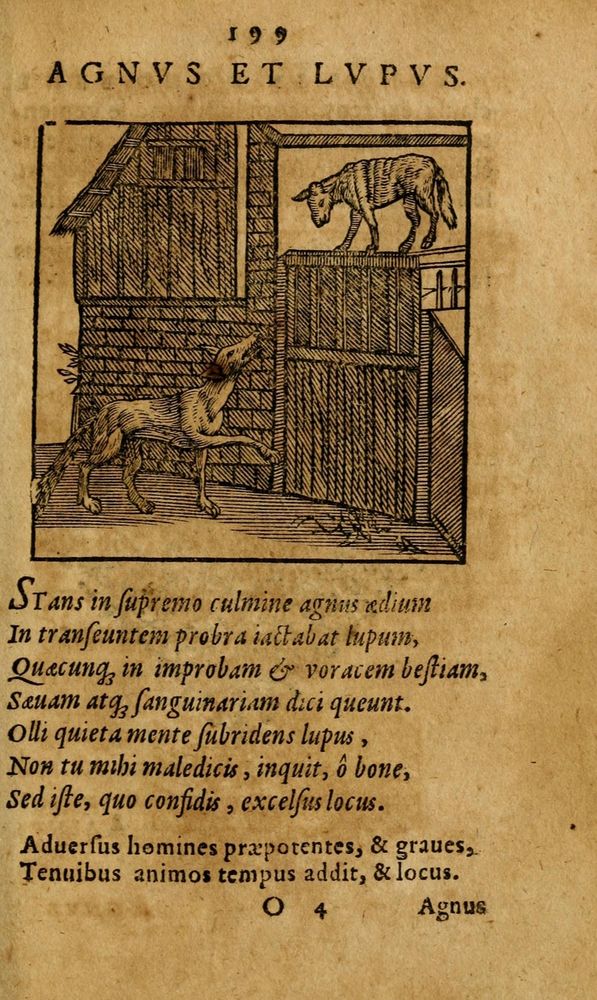 199
AGNVS ET LVPVS.
STans in ſupremo culmine agnus ædium
In tranſeuntem probra iactabat lupum,
Quæcunqꝫ in improbam & voracem beſtiam,
Sæuam atqꝫ ſanguinariam dici queunt.
Olli quieta mente ſubridens lupus,
Non tu mihi maledicis, inquit, ô bone,
Sed iſte, quo confidis, excelſus locus.
Aduerſus homines præpotentes, & graues,
Tenuibus animos tempus addit, & locus.
O 4
Agnus